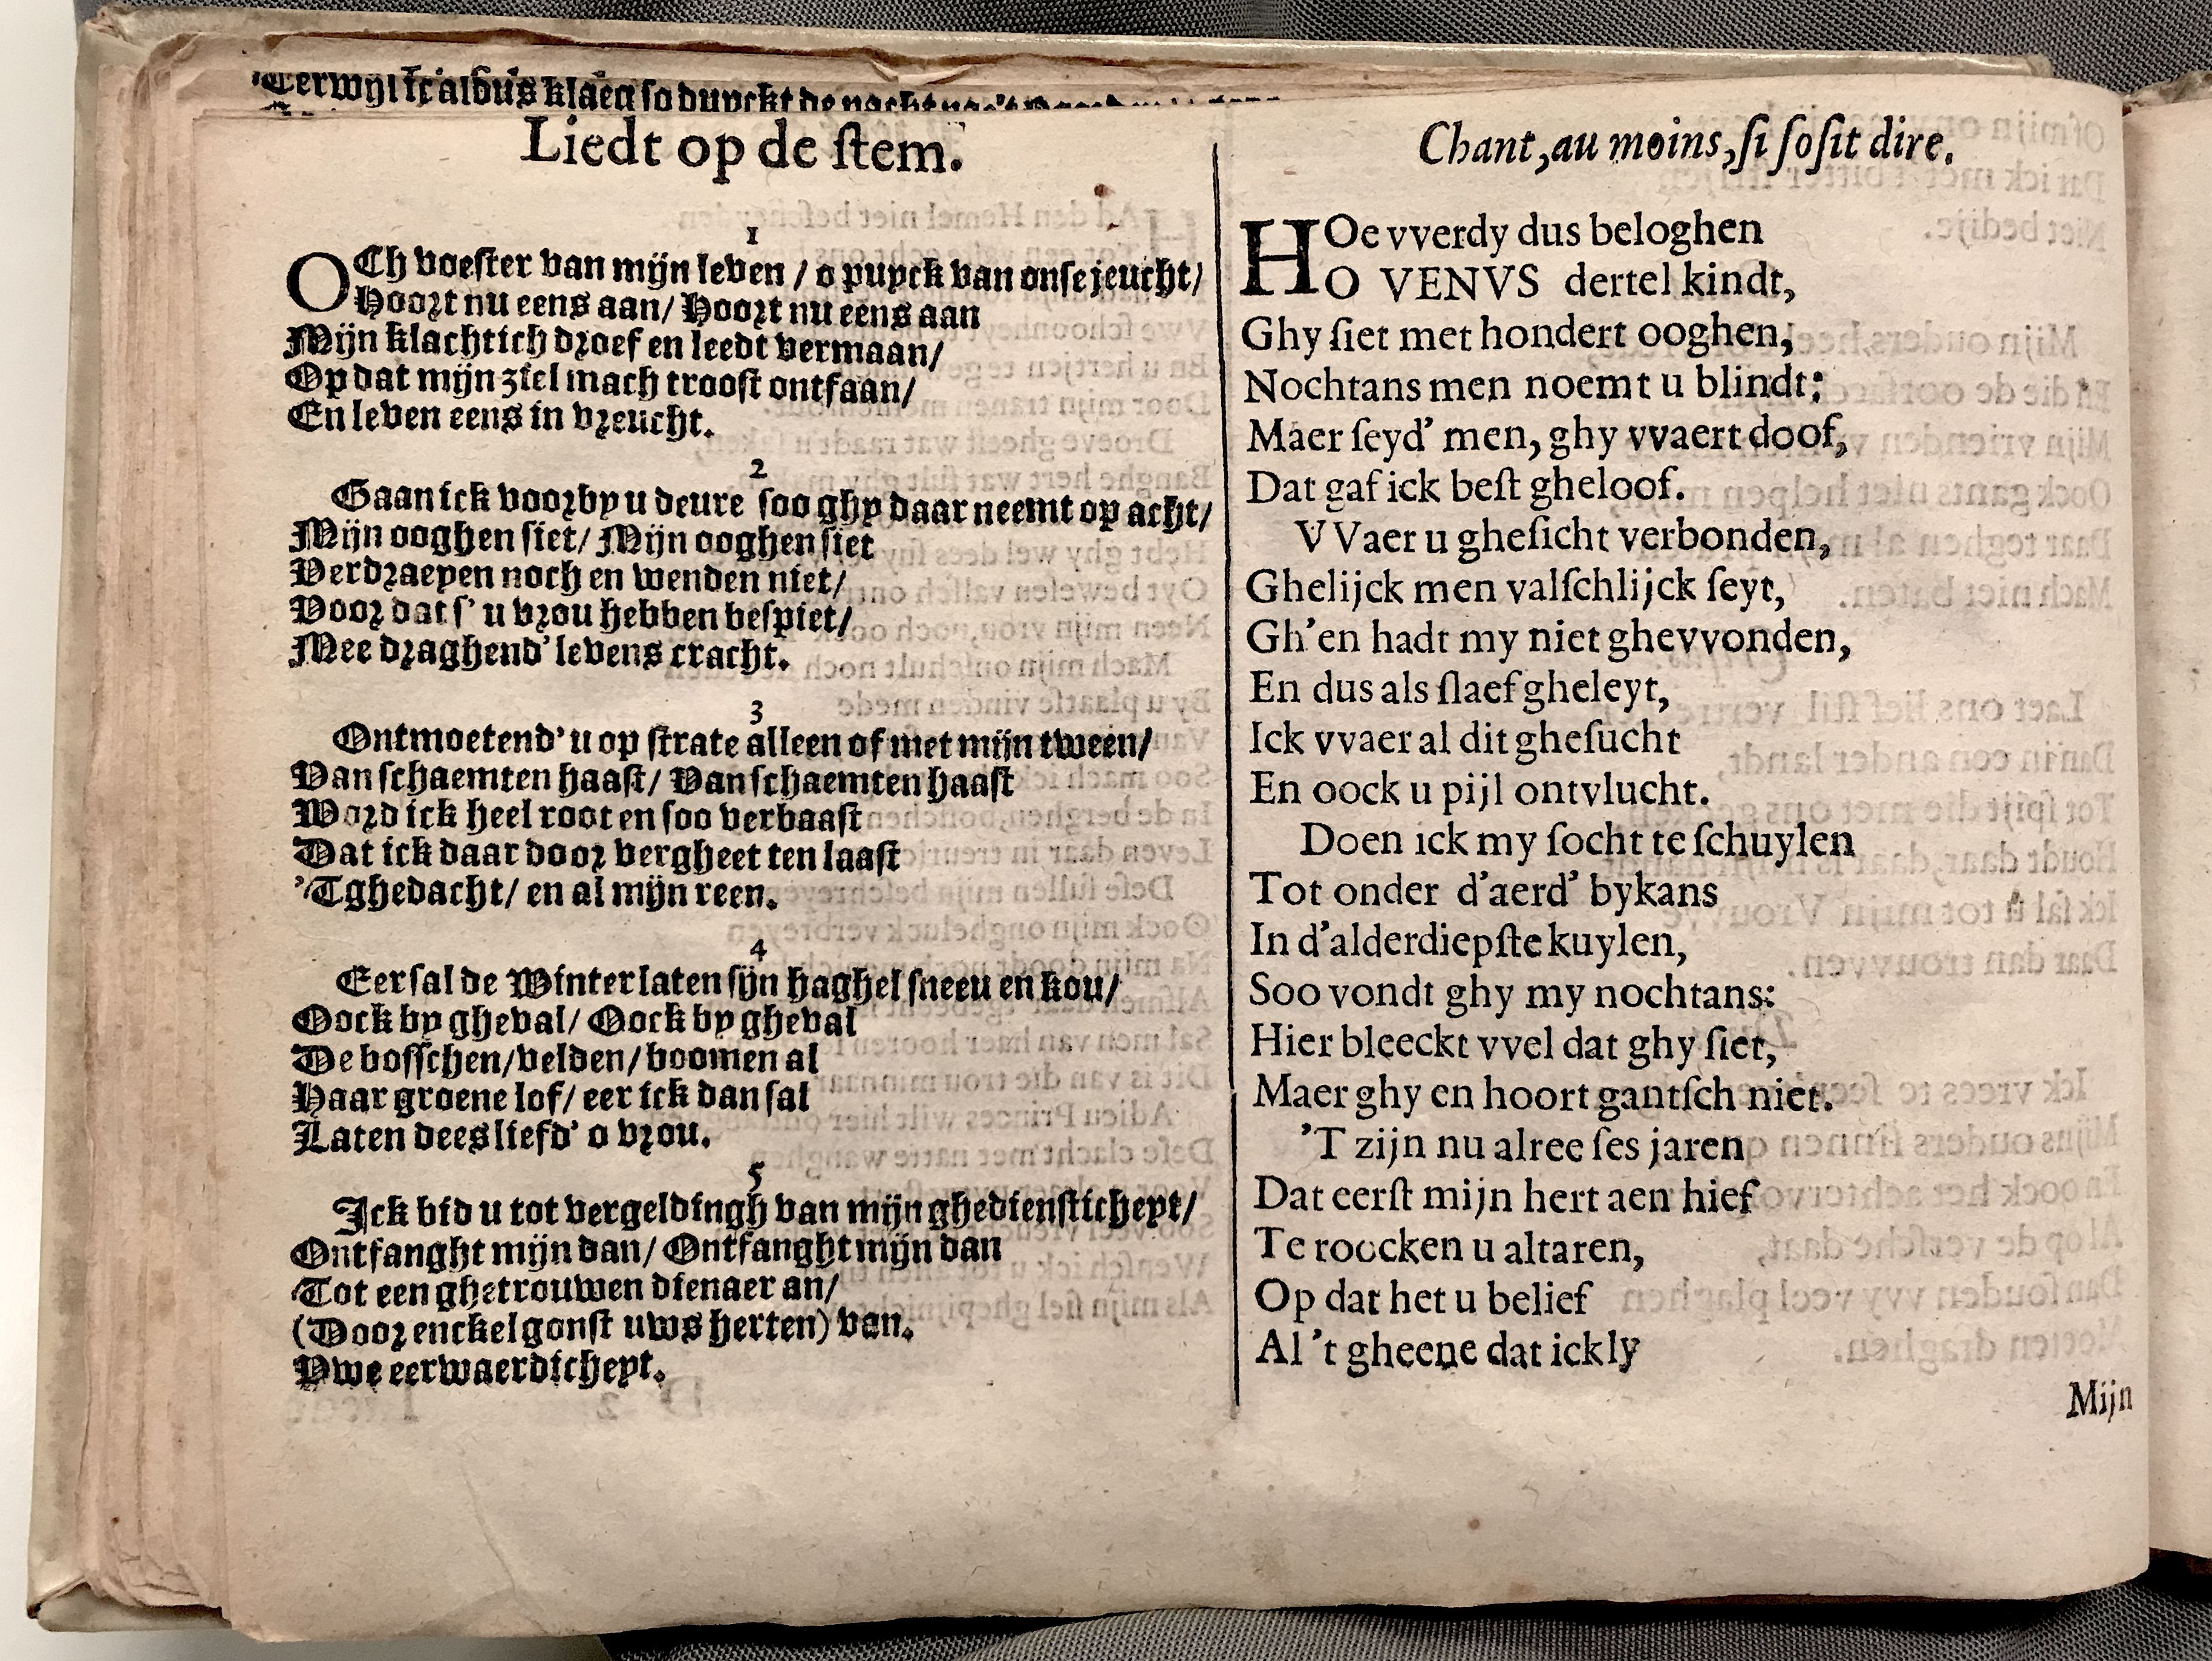 Terwyl ick aldus klaeg so dunckt de nacht
Liedt op de ſtem.
1
OCh voeſter van mijn leven / o puyck van onſe jeucht/
Hoort nu eens aan/ Hoort nu eens aan
Mijn klachtich droef en leedt vermaan/
Op dat mijn ziel mach trooſt ontfaan/
En leven eens in vreucht.
2
Gaan ick voorby u deure ſoo ghy daar neemt op acht/
Mijn ooghen ſiet/ Mijn ooghen ſiet
Verdraeyen noch en wenden niet/
Door dat ſ' u vrou hebben beſpiet/
Mee draghend' levens cracht.
3
Ontmoetend' u op ſtrate alleen of met mijn tween/
Van ſchaemten haaſt/ Van ſchaemten haaſt
Word ick heel root en ſoo verbaaſt
Dat ick daar door vergheet ten laaſt
'Tghedacht/ en al mijn reen.
4
Eer ſal de Winter laten ſijn haghel ſneeu en kou/
Oock by gheval/ Oock by gheval
De boſſchen/velden/boomen al
Haar groene lof/ eer ick dan ſal
Laten dees liefd' o vrou.
5
Ick bid u tot vergeldingh van mijn ghedienſticheyt/
Ontfanght mijn dan/ Ontfanght mijn dan
Tot een ghetrouwen dienaer an/
(Door enckel gonſt uws herten) van.
Vwe eerwaerdicheyt.
Chant, au moins, ſi ſoſit dire.
HOe vverdy dus beloghen
O VENVS dertel kindt,
Ghy ſiet met hondert ooghen;
Nochtans men noemt u blindt:
Maer ſeyd' men, ghy vvaert doof,
Dat gaf ick beſt gheloof.
VVaer u gheſicht verbonden,
Ghelijck men valſchlijck ſeyt,
Gh'en hadt my niet ghevvonden,
En dus als ſlaef gheleyt,
Ick vvaer al dit gheſucht
En oock u pijl ontvlucht.
Doen ick my ſocht te ſchuylen
Tot onder d'aerd' bykans
In d'alderdiepſte kuylen,
Soo vondt ghy my nochtans:
Hier bleeckt vvel dat ghy ſiet,
Maer ghy en hoort gantſch niet.
'T zijn nu alree ſes jaren
Dat eerſt mijn hert aen hief
Te roocken u altaren,
Op dat het u belief
Al 't gheene dat ick ly
Mijn